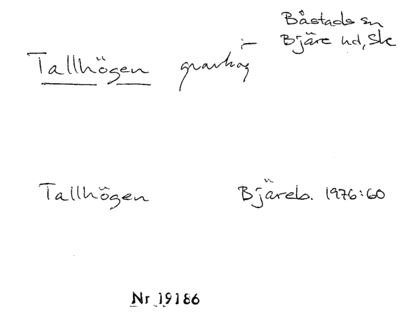 Båstads sn
Bjäre hd, Ske
Tallhögen gravhög
Tallhögen Bjäreb. 1976:60
Nr 19186